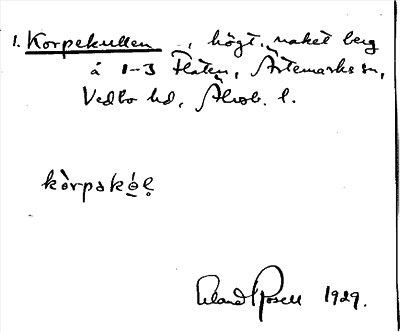 1. Korpekullen -, högt, naket berg
å 1-3 Flaten, Ärtemarks sn,
Vedbo hd, Älvsb. l.
kòrpəkól̥
Erland Rosell 1929.